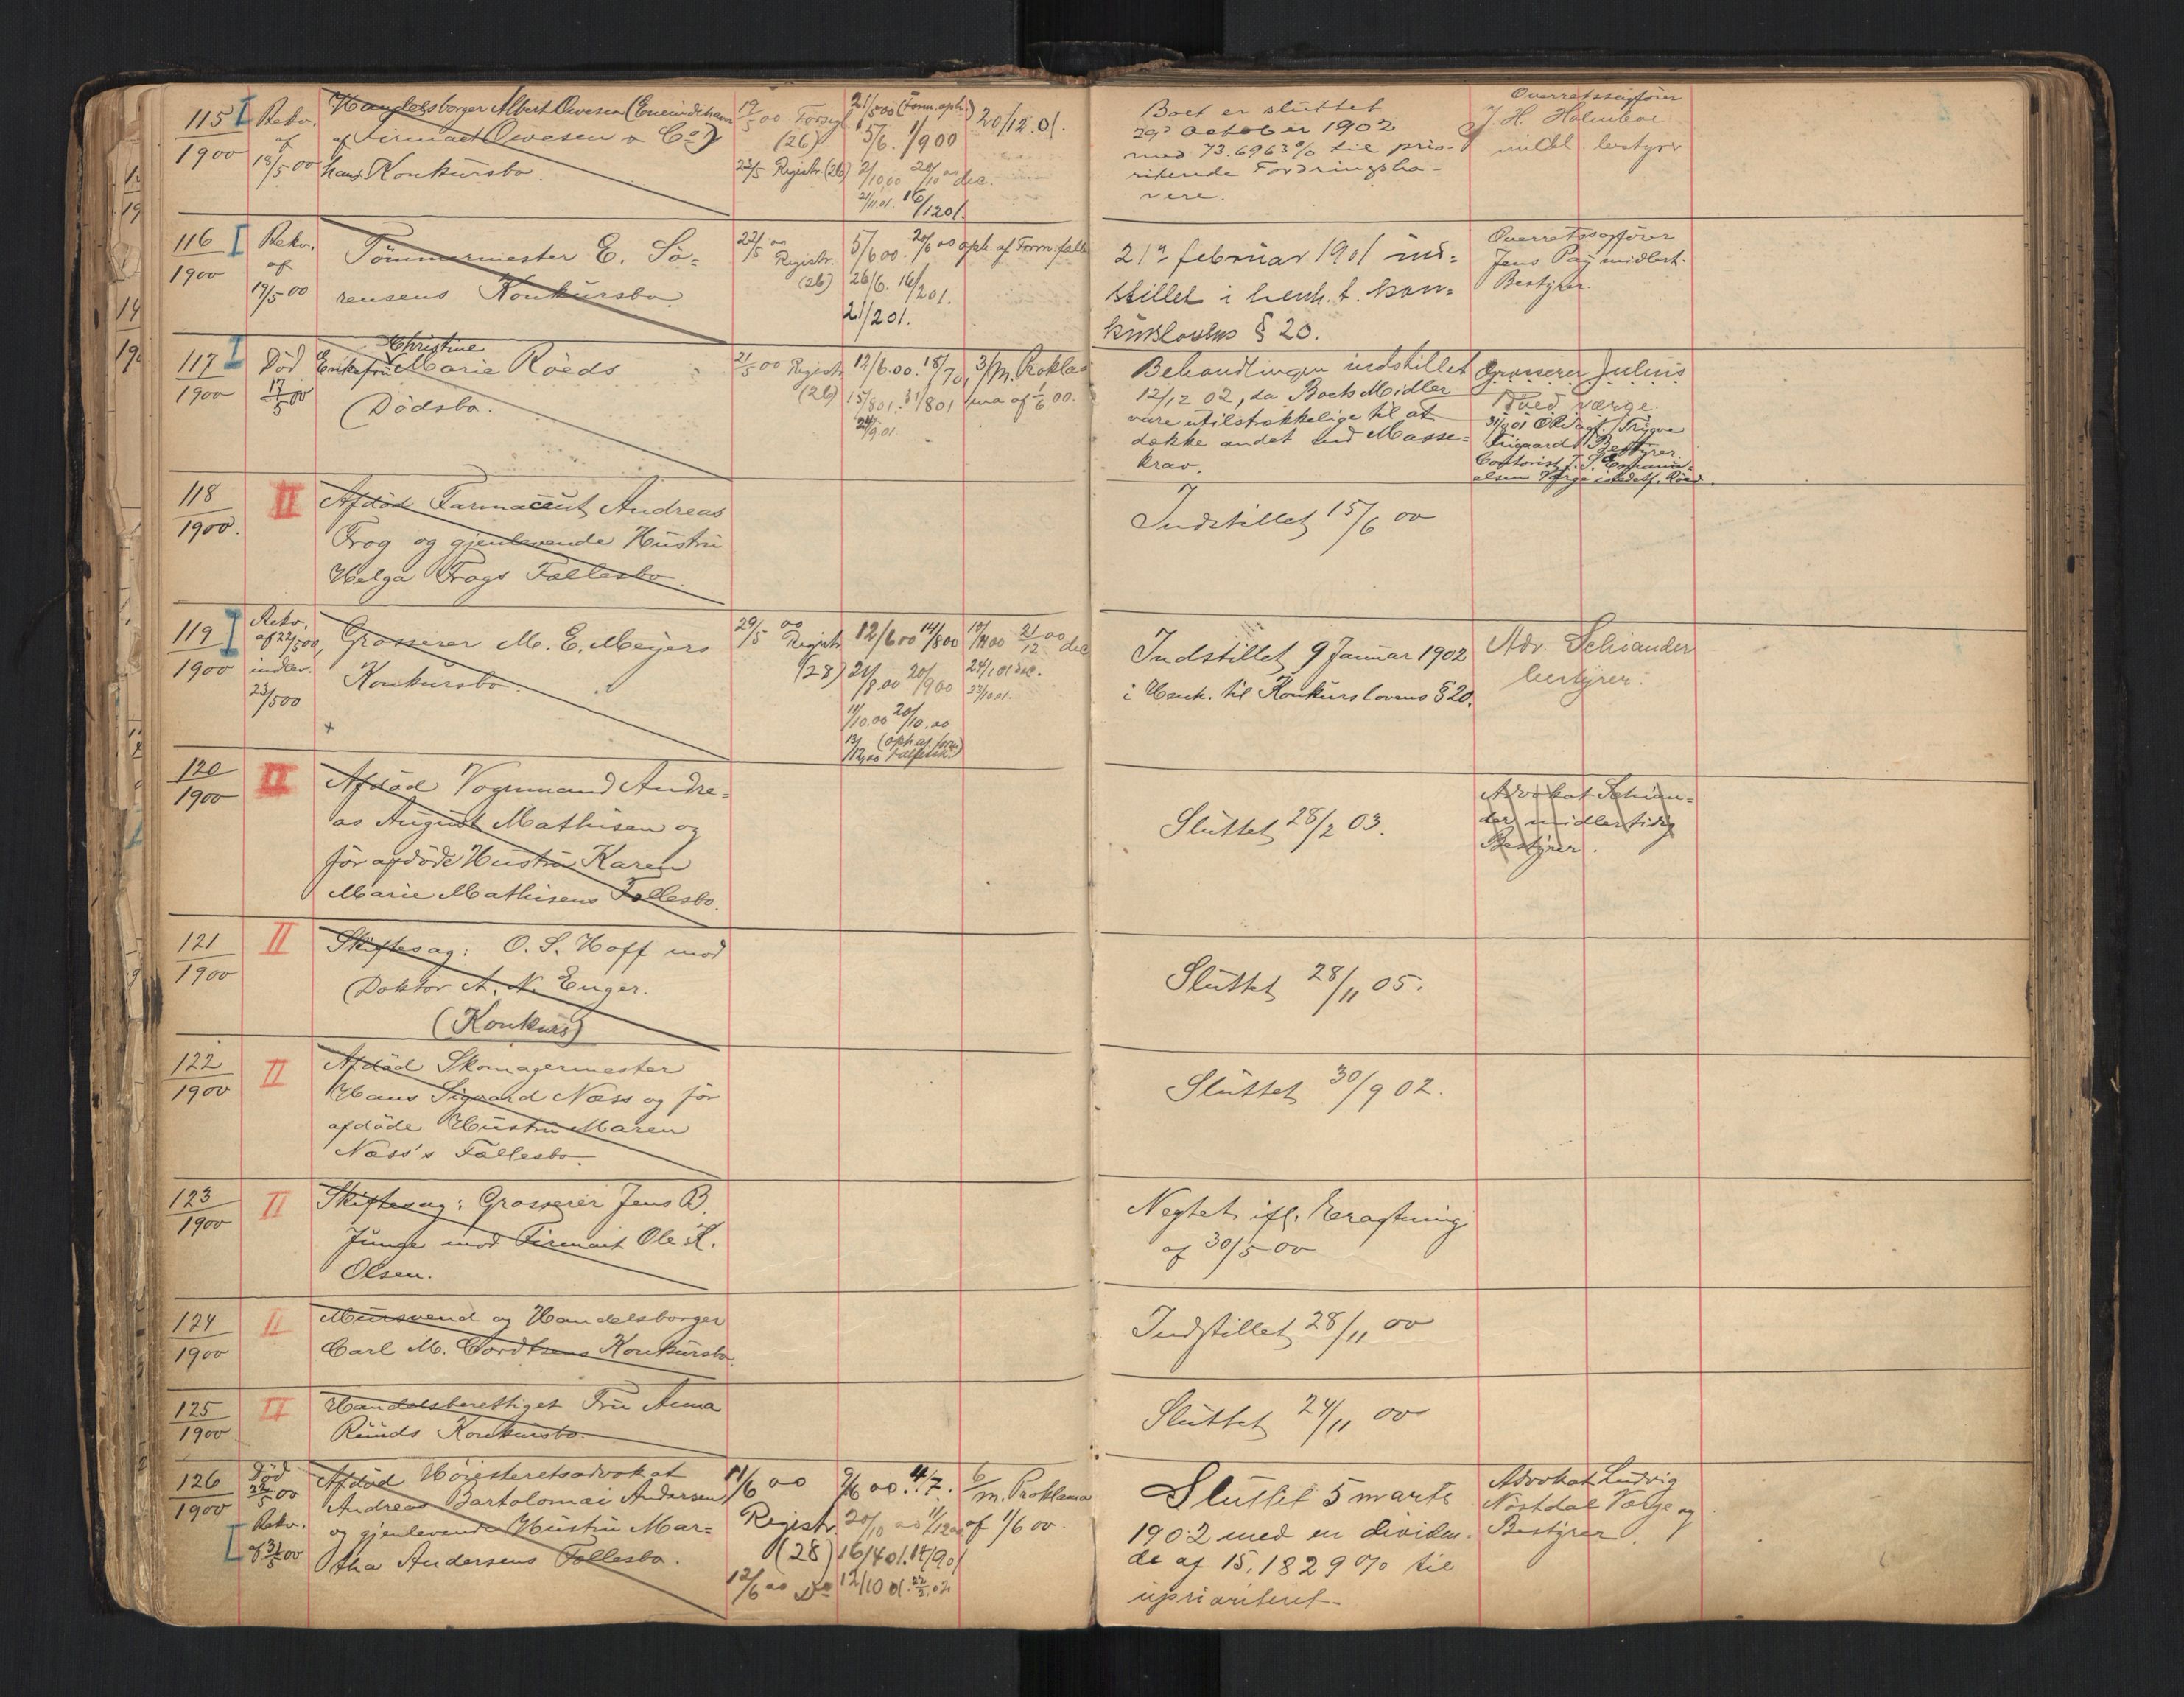 115 I Rekv. Handelsborger Albert Owesen (Eneindehaver 19/5 00 Forsegl. 21/5 00 (Form. oph.) 20/12.01.
1900 af af Firmaet Owesen & Co) (26) 5/6. 1/9 00
18/5 00 hans Konkursbo. 23/5 Registr. (26) 2/10.00 20/10 00 dec.
21/11.01. 16/12 01.
Boet er sluttet
29de October 1902
med 73.6963% til prio-
riterede Fordringsha-
vere.
Overretssagfører
J. H. Holmboe
midl. bestyrer
116 I Rekv. Tömmermester E. Sö- 22/5 00 5/6 00. 20/6 00 oph. af Form. fælle
1900 af rensens Konkursbo. Registr. 26/6. 16/2 01.
19/5 00 (26) 21/2 01.
21de februar 1901 ind-
stillet i henh. t. kon-
kurslovens § 20.
Overretssagfører
Jens Pay midlert.
Bestyrer.
117 I Död Christine
1900 17/5 00 Enkefru Marie Röeds 21/5 00 Registr. 12/6.00. 18/7 0, 3/m. Prokla-
Dödsbo. (26) 15/8 01. 31/8 01 ma af 1/6 00.
24/9 01
Behandlingen indstillet
12/12 02, da Boets Midler
vare utilstrækkelige til at
dække andet end Masse-
krav.
Grosserer Julius
Röed værge.
31/8 01 Trygve
Bestyrer.
118 II Afdöd Farmaceut Andreas
1900. Frog og gjenlevende Hustru
Helga Frogs Fællesbo.
Indstillet 15/6 00
119 I Rekv. Grosserer M. E. Meyers 29/5 00 12/6 00 14/8 00 21/12 00 dec
1900 af 22/5 00, Konkursbo. Registr. 21/8.00 20/9 00 24/1 01 dec.
indlev. (28) 11/10.00 20/10.00
23/5 00 13/12.00 (oph af form
fællessk.)
Indstillet 9 Januar 1902
i Henh. til Konkurslovens § 20.
Adv. Schiander
bestyrer.
120 II Afdöd Vognmand Andre-
1900 as August Mathisen og
för afdöde Hustru Karen
Marie Mathisens Fællesbo.
Sluttet 28/2 03.
Advokat Schian-
der midlertidig
Bestyrer.
121 II Skiftesag: O. S. Hoff mod
1900 Doktor A. N. Enger.
(Konkurs)
Sluttet 28/11 05.
122 II Afdöd Skomagermester
1900 Hans Sigvard Næss og för
afdöde Hustru Maren
Næss's Fællesbo.
Sluttet 30/9 02.
123 II Skiftesag: Grosserer Jens B.
1900 Junge mod Firmaet Ole K.
Olsen.
Negtet ifl. Eragtning
af 30/5 00
124 II Mursvend og Handelsborger
1900 Carl M. Cordtsens Konkursbo.
Indstillet 28/11 00
125 II Handelsberettiget Fru Anna
1900 Ruuds Konkursbo.
Sluttet 24/11 00
126 Död Afdöd Höiesteretsadvokat 11/6 00 9/6 00. 4/7. 6/m. Proklama
1900 22/5 00 Andreas Bartolomæi Andersen Registr. 20/10 00 1/12 00 af 1/6 00.
I Rekv. og gjenlevende Hustru Mar- (28) 16/4 01. 14/9 01
af 31/5 00 tha Andersens Fællesbo. 12/6 00 Do 12/10 01. 22/2.02
Sluttet 5 marts
1902 med en dividen-
de af 15,1829% til
uprioriteret-
Advokat Ludvig
Nöstdal Værge og
Bestyrer.